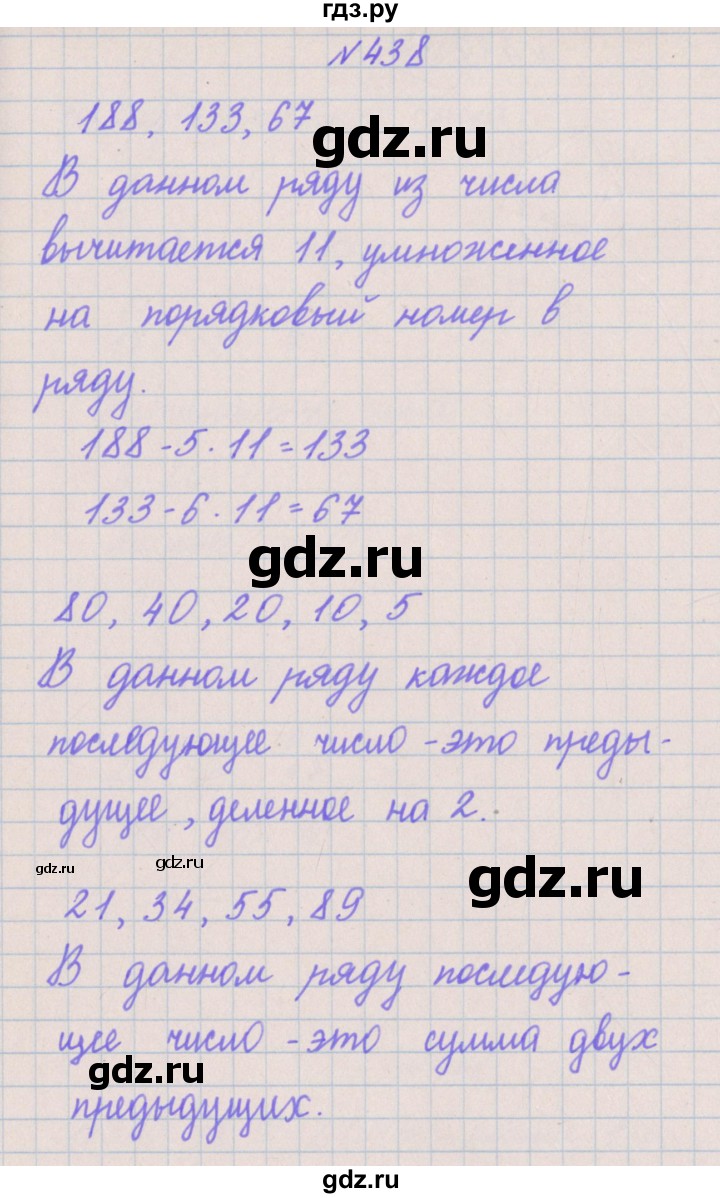 гдз.ру
№438
188, 133, 67
gdz.ru
В данном ряду из числа
вычитается 11, умноженное
на порядковый номер в
ряду.
188-5·11=133
133-6·11=67
gdz.ru
80, 40, 20, 10, 5
В данном ряду каждое
последующее число -это преды-
дущее, деленное на 2.
gdz.ru
gdz.ru
gdz.ru
21, 34, 55, 89
В данном ряду последую-
щее число -это сумма двух
gdz.ru
предыдущих.
gdz.ru